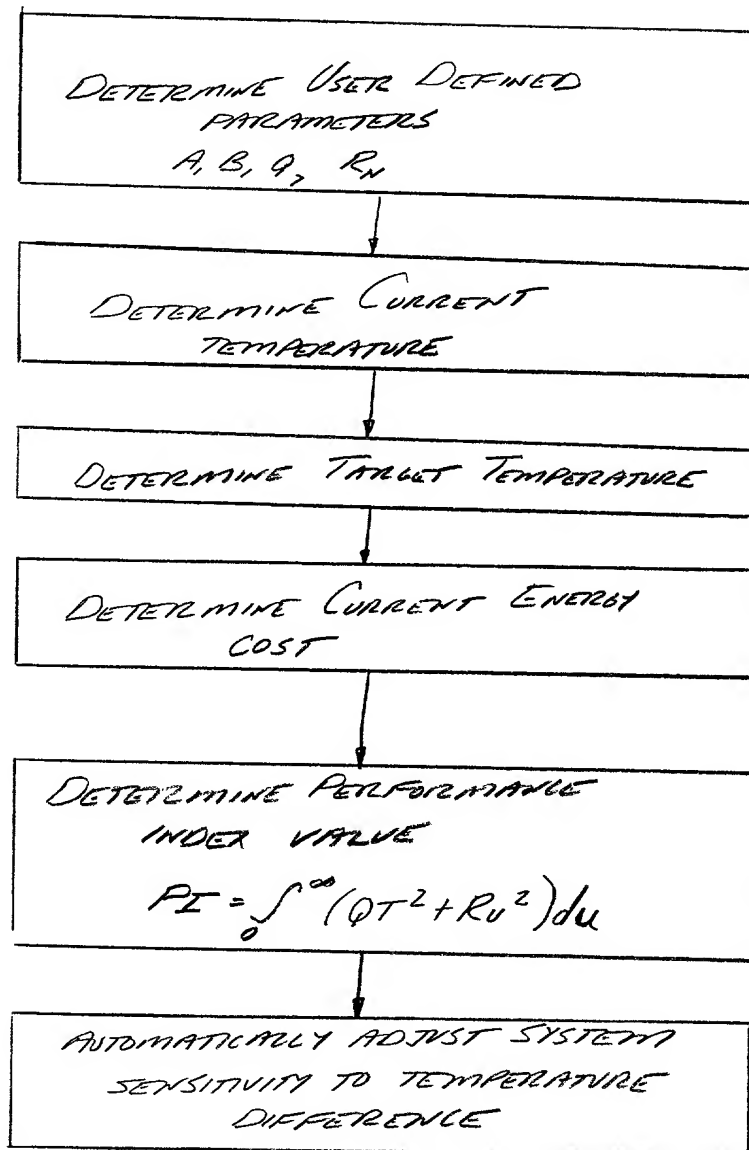 DETERMINE USER DEFINED
PARAMETERS
A, B, Q, R_N
DETERMINE CURRENT
TEMPERATURE
DETERMINE TARGET TEMPERATURE
DETERMINE CURRENT ENERGY
COST
DETERMINE PERFORMANCE
INDEX VALUE
PI = ₀∫^∞ (QT² + Ru²)du
AUTOMATICALLY ADJUST SYSTEM
SENSITIVITY TO TEMPERATURE
DIFFERENCE